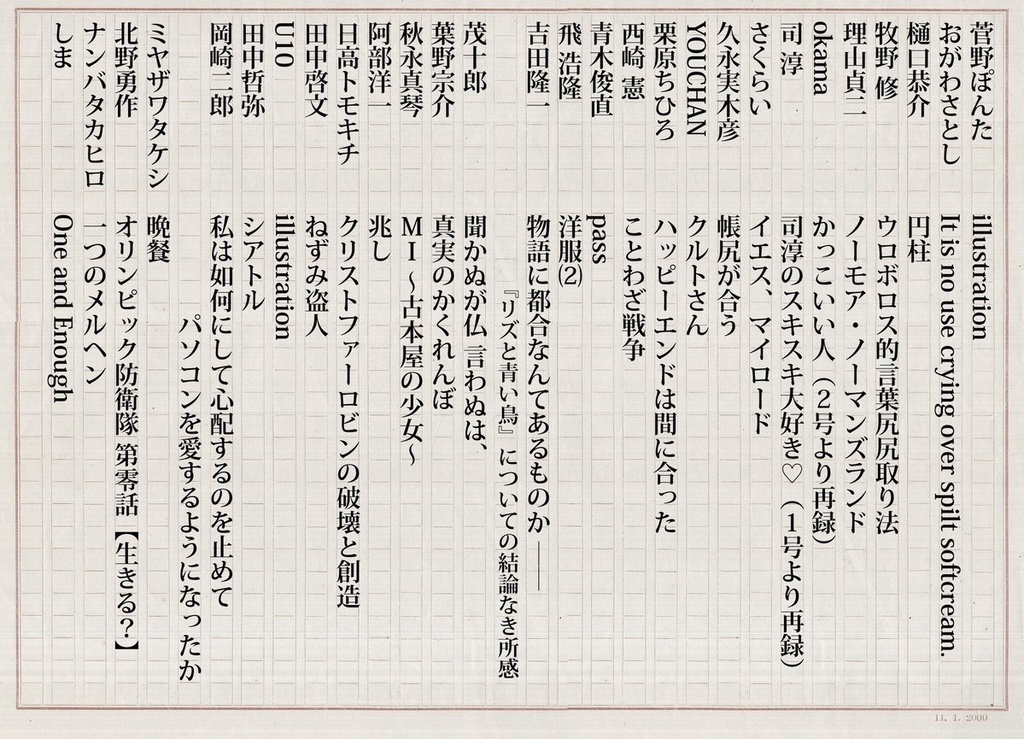 菅野ぽんた　illustration
おがわさとし　It is no use crying over spilt softcream.
樋口恭介　円柱
牧野 修　ウロボロス的言葉尻尻取り法
理山貞二　ノーモア・ノーマンズランド
okama　かっこいい人（２号より再録）
司 淳　司淳のスキスキ大好き♡（１号より再録）
さくらい　イエス、マイロード
久永実木彦　帳尻が合う
YOUCHAN　クルトさん
栗原ちひろ　ハッピーエンドは間に合った
西崎 憲　ことわざ戦争
青木俊直　pass
飛 浩隆　洋服⑵
吉田隆一　物語に都合なんてあるものか――
『リズと青い鳥』についての結論なき所感
茂十郎　聞かぬが仏 言わぬは、
葉野宗介　真実のかくれんぼ
秋永真琴　ＭＩ～古本屋の少女～
阿部洋一　兆し
日高トモキチ　クリストファーロビンの破壊と創造
田中啓文　ねずみ盗人
U10　illustration
田中哲弥　シアトル
岡崎二郎　私は如何にして心配するのを止めて
パソコンを愛するようになったか
ミヤザワタケシ　晩餐
北野勇作　オリンピック防衛隊 第零話【生きる？】
ナンバタカヒロ　一つのメルヘン
しま　One and Enough
11. 1. 2000